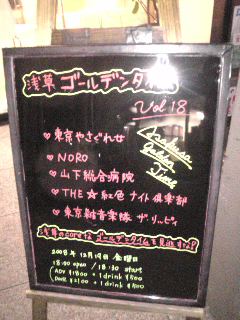 浅草 ゴールデンタイム
Vol 18
Asakusa
Golden
Time
♥ 東京やさぐれせ
♥ NORO
♥ 山下総合病院
♥ THE ☆ 紅色ナイト倶楽部
♥ 東京
2008年 12月19日 金曜日
18:00 open / 18:30 start
ADV ¥1800 + 1drink ¥500
DOOR ¥2100 + 1drink ¥500